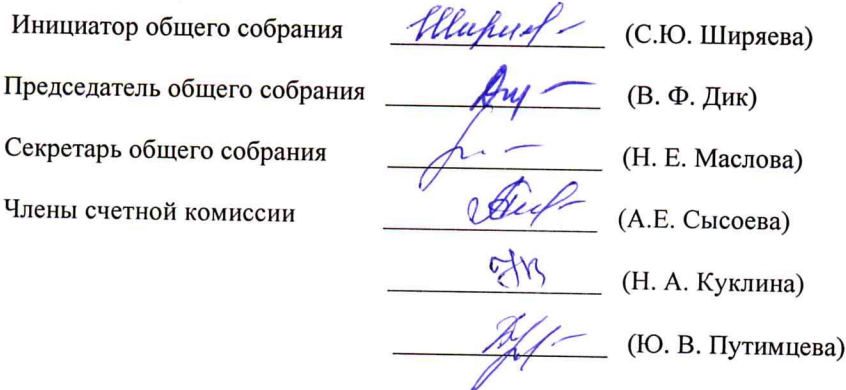 Инициатор общего собрания (С.Ю. Ширяева)
Председатель общего собрания (В. Ф. Дик)
Секретарь общего собрания (Н. Е. Маслова)
Члены счетной комиссии (А.Е. Сысоева)
(Н. А. Куклина)
(Ю. В. Путимцева)